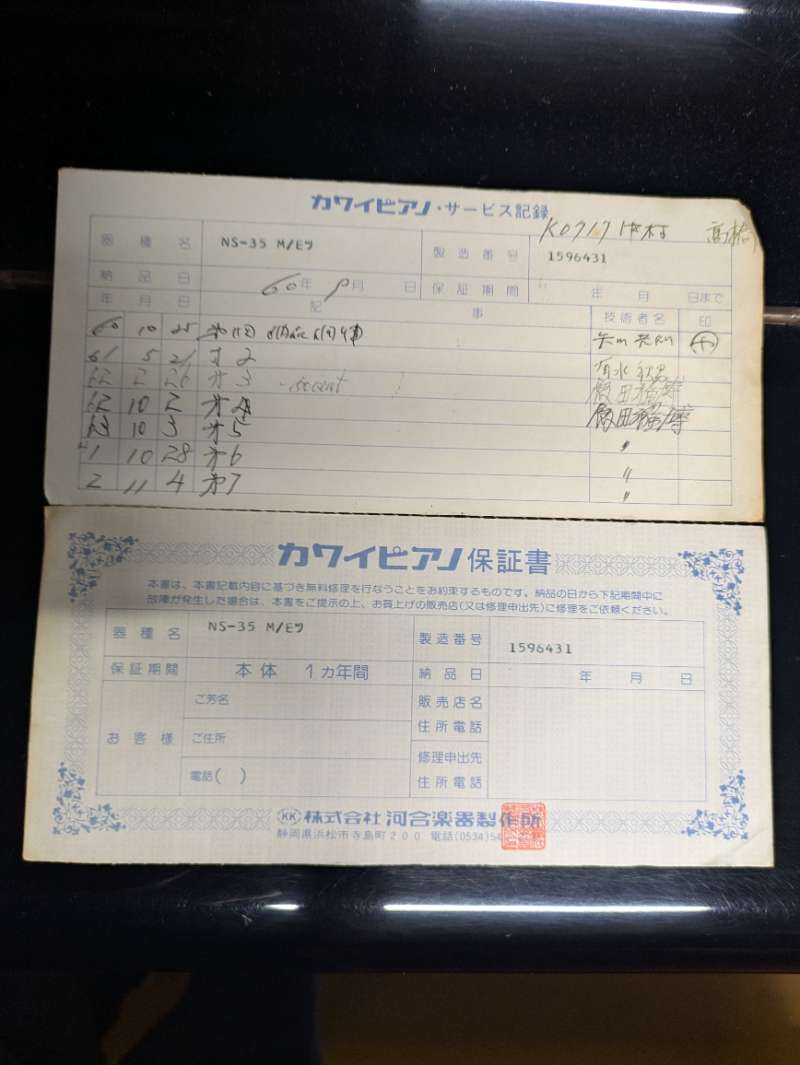 カワイピアノ・サービス記録
器種名 NS-35 M/Eク 製造番号 1596431
納品日 60年 9月 日 保証期間 年 月 日まで
年 月 日 記 事 技術者名 印
60 10 25
61 5 21 才2
62 2 26 才3
62 10 2 才4 飯田
63 10 3 才5 〃
1 10 28 才6 〃
2 11 4 才7 〃
カワイピアノ保証書
本書は、本書記載内容に基づき無料修理を行なうことをお約束するものです。納品の日から下記期間中に
故障が発生した場合は、本書をご提示の上、お買上げの販売店(又は修理申出先)に修理をご依頼ください。
器種名 NS-35 M/Eク 製造番号 1596431
保証期間 本体 1カ年間 納品日 年 月 日
お客様 ご芳名 販売店名
ご住所 住所電話
電話( ) 修理申出先
住所電話
KK 株式会社 河合楽器製作所
静岡県浜松市寺島町200 電話(0534)54